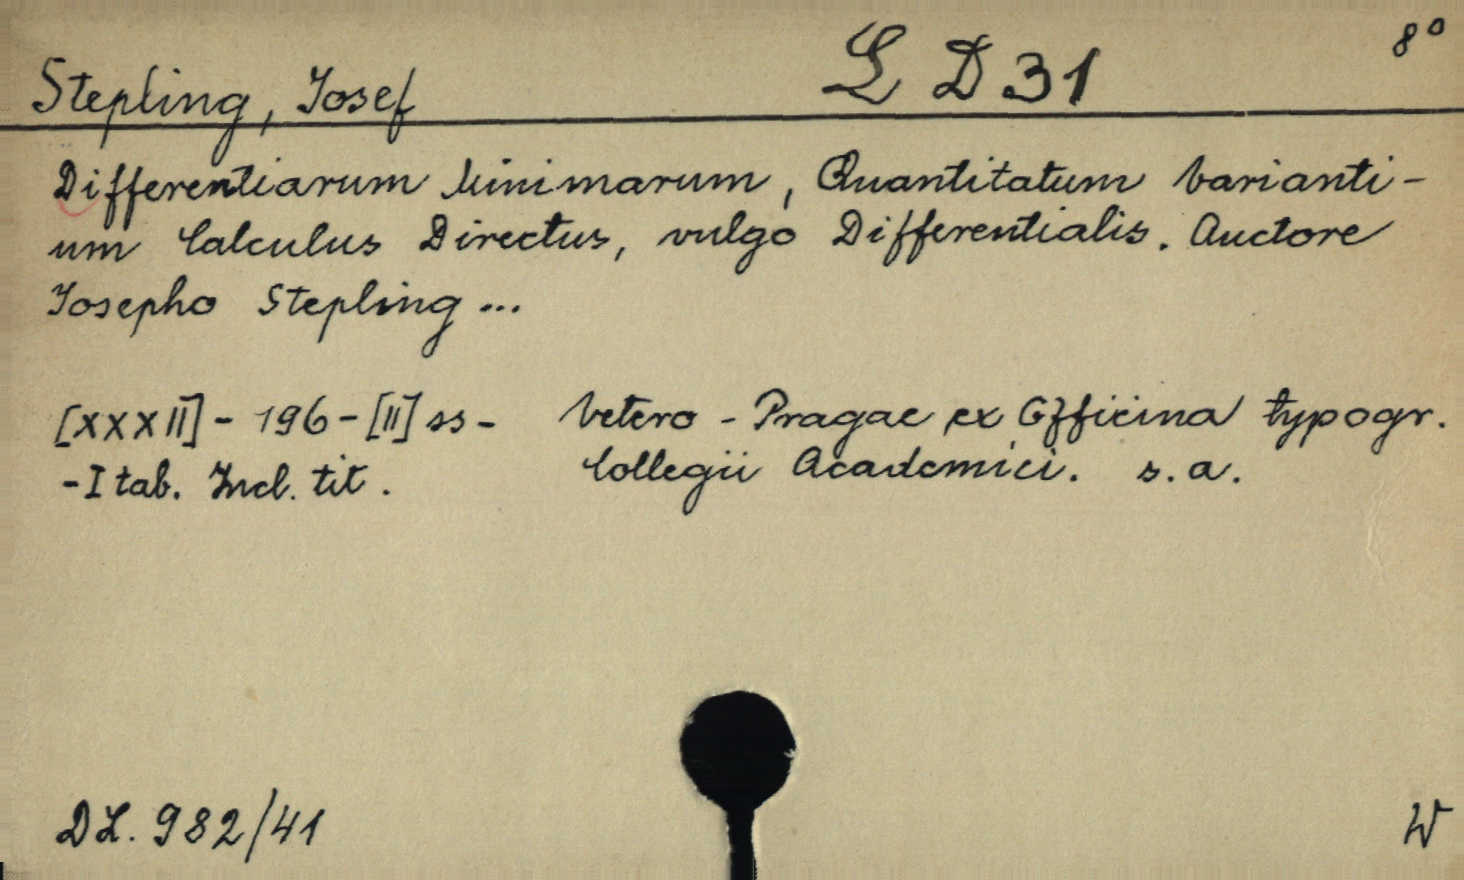 Stepling, Josef L D 31 8°
Differentiarum Minimarum, Quantitatum Varianti-
um Calculus Directus, vulgo Differentialis. Auctore
Josepho Stepling...
[XXXII] - 196 - [II] ss - Vetero - Pragae ex Officina typogr.
- I tab. Incl. tit. Collegii Academici. s.a.
DL. 982/41 W